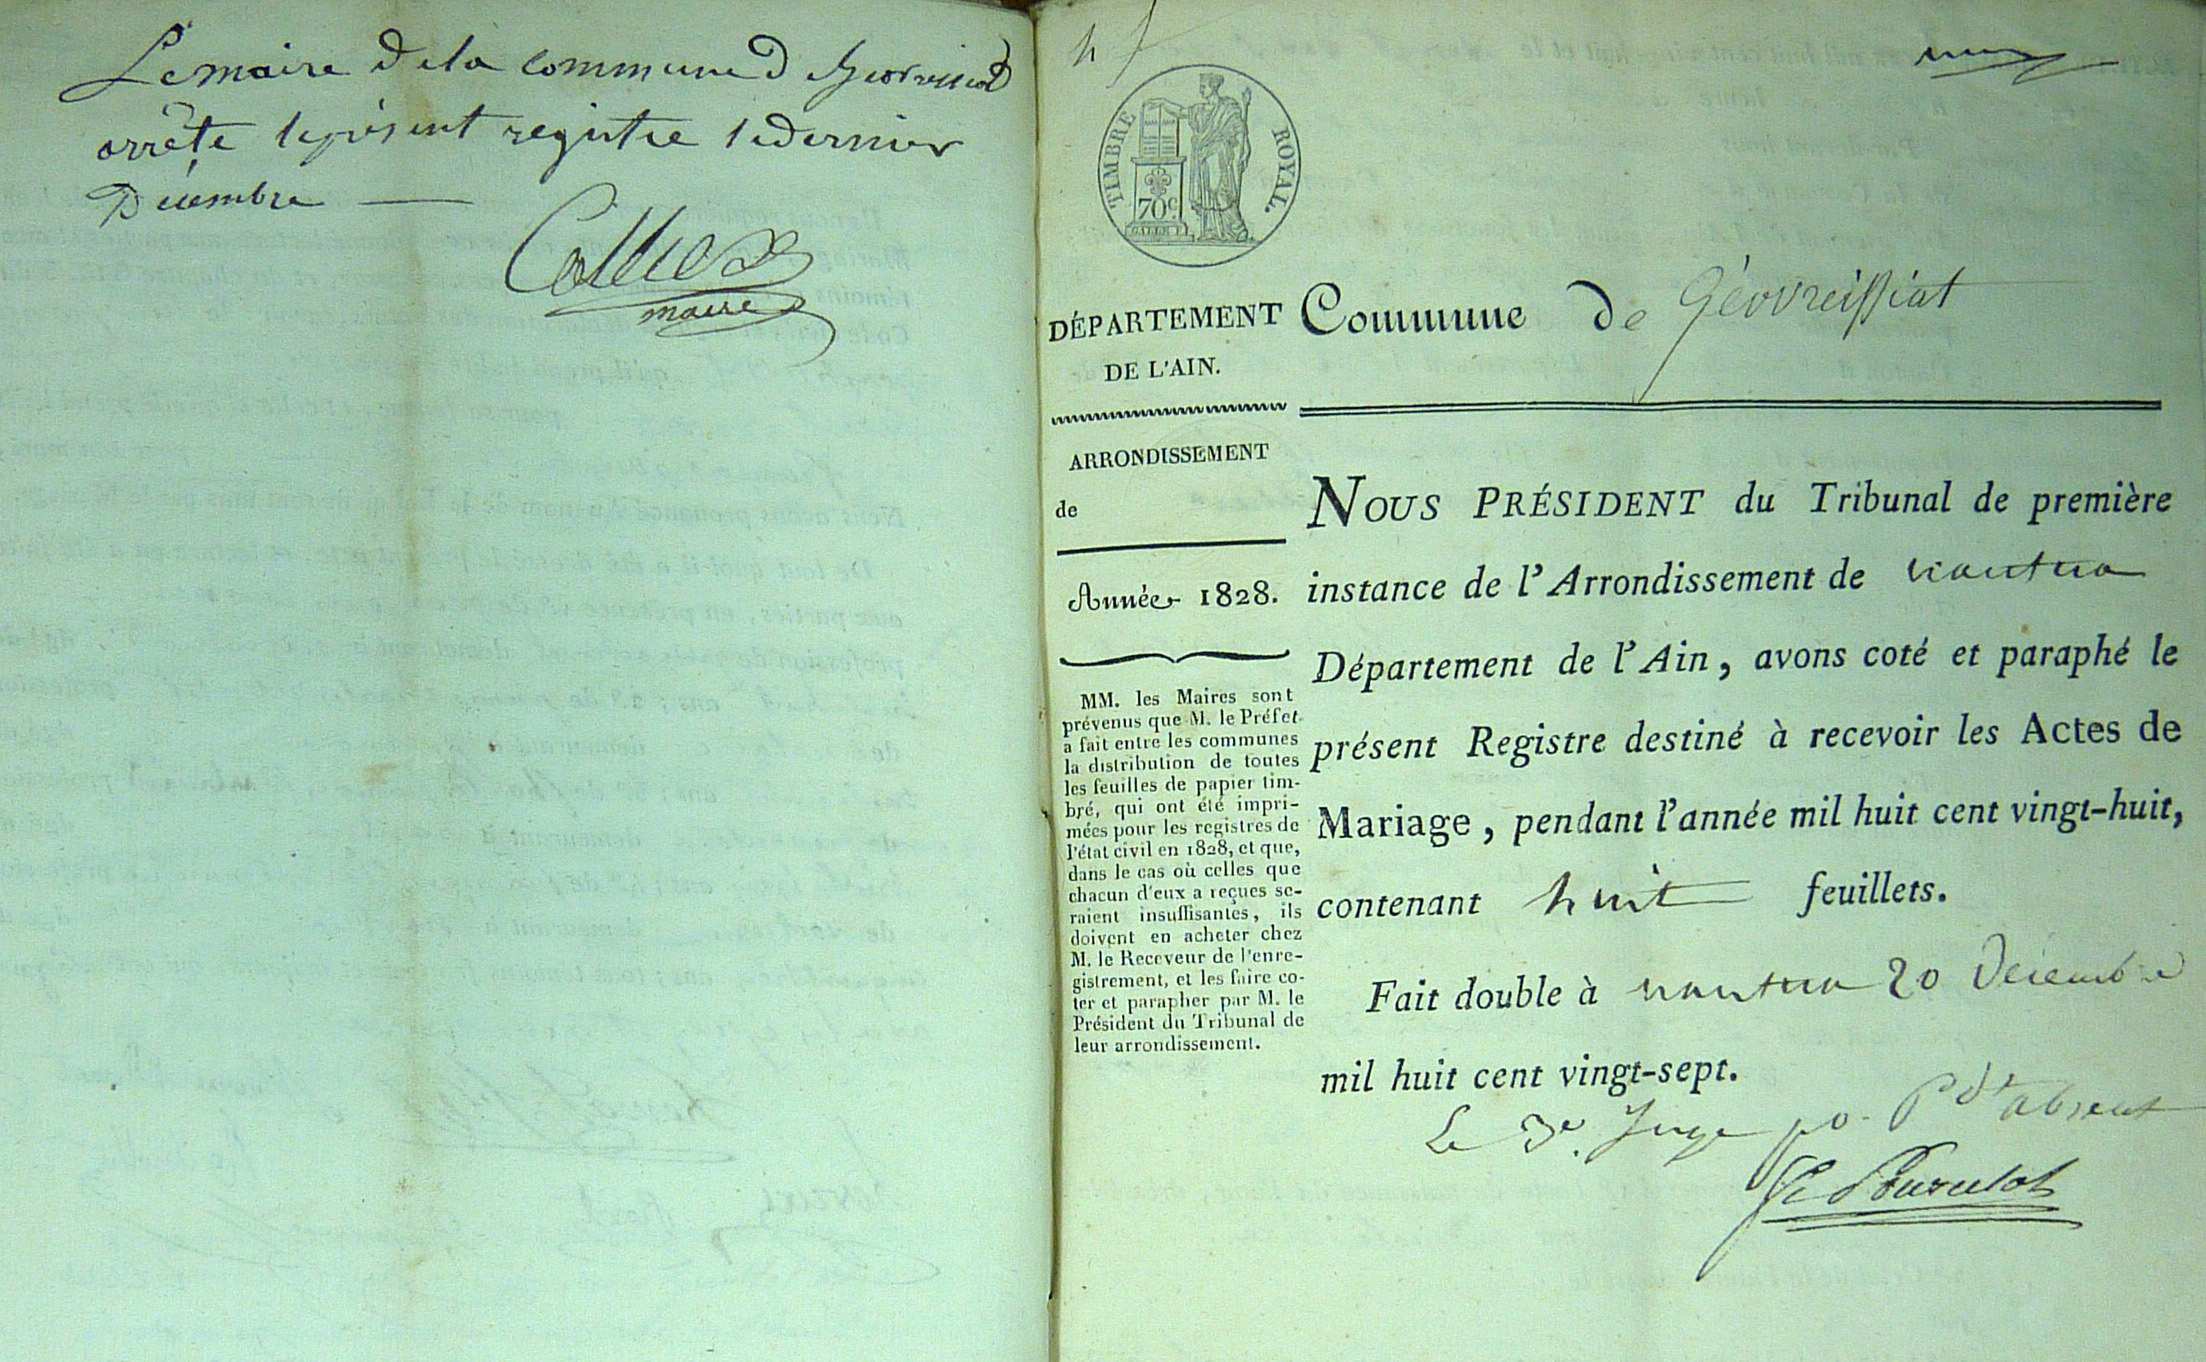 Le maire de la commune d Géovreissiat
arrête le présent registre le dernier
Décembre
maire
TIMBRE ROYAL.
70c.
DÉPARTEMENT
DE L'AIN.
Commune de Géovreissiat
ARRONDISSEMENT
de
Année 1828.
MM. les Maires sont
prévenus que M. le Préfet
a fait entre les communes
la distribution de toutes
les feuilles de papier tim-
bré, qui ont été impri-
mées pour les registres de
l'état civil en 1828, et que,
dans le cas où celles que
chacun d'eux a reçues se-
raient insuffisantes, ils
doivent en acheter chez
M. le Receveur de l'enre-
gistrement, et les faire co-
ter et parapher par M. le
Président du Tribunal de
leur arrondissement.
NOUS PRÉSIDENT du Tribunal de première
instance de l'Arrondissement de nantua
Département de l'Ain, avons coté et paraphé le
présent Registre destiné à recevoir les Actes de
Mariage, pendant l'année mil huit cent vingt-huit,
contenant huit feuillets.
Fait double à nantua 20 Décembre
mil huit cent vingt-sept.
Le 3e. Juge po. Pdt absent